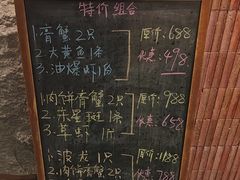 特价组合
1.青蟹2只
2.大黄鱼1条
3.油爆虾1份
原价:688
优惠:498
1.肉饼青蟹2只
2.东星斑1条
3.草虾1斤
原价:988
优惠:688
1.波龙1只
2.肉饼青蟹2只
原价:1188
优惠:788